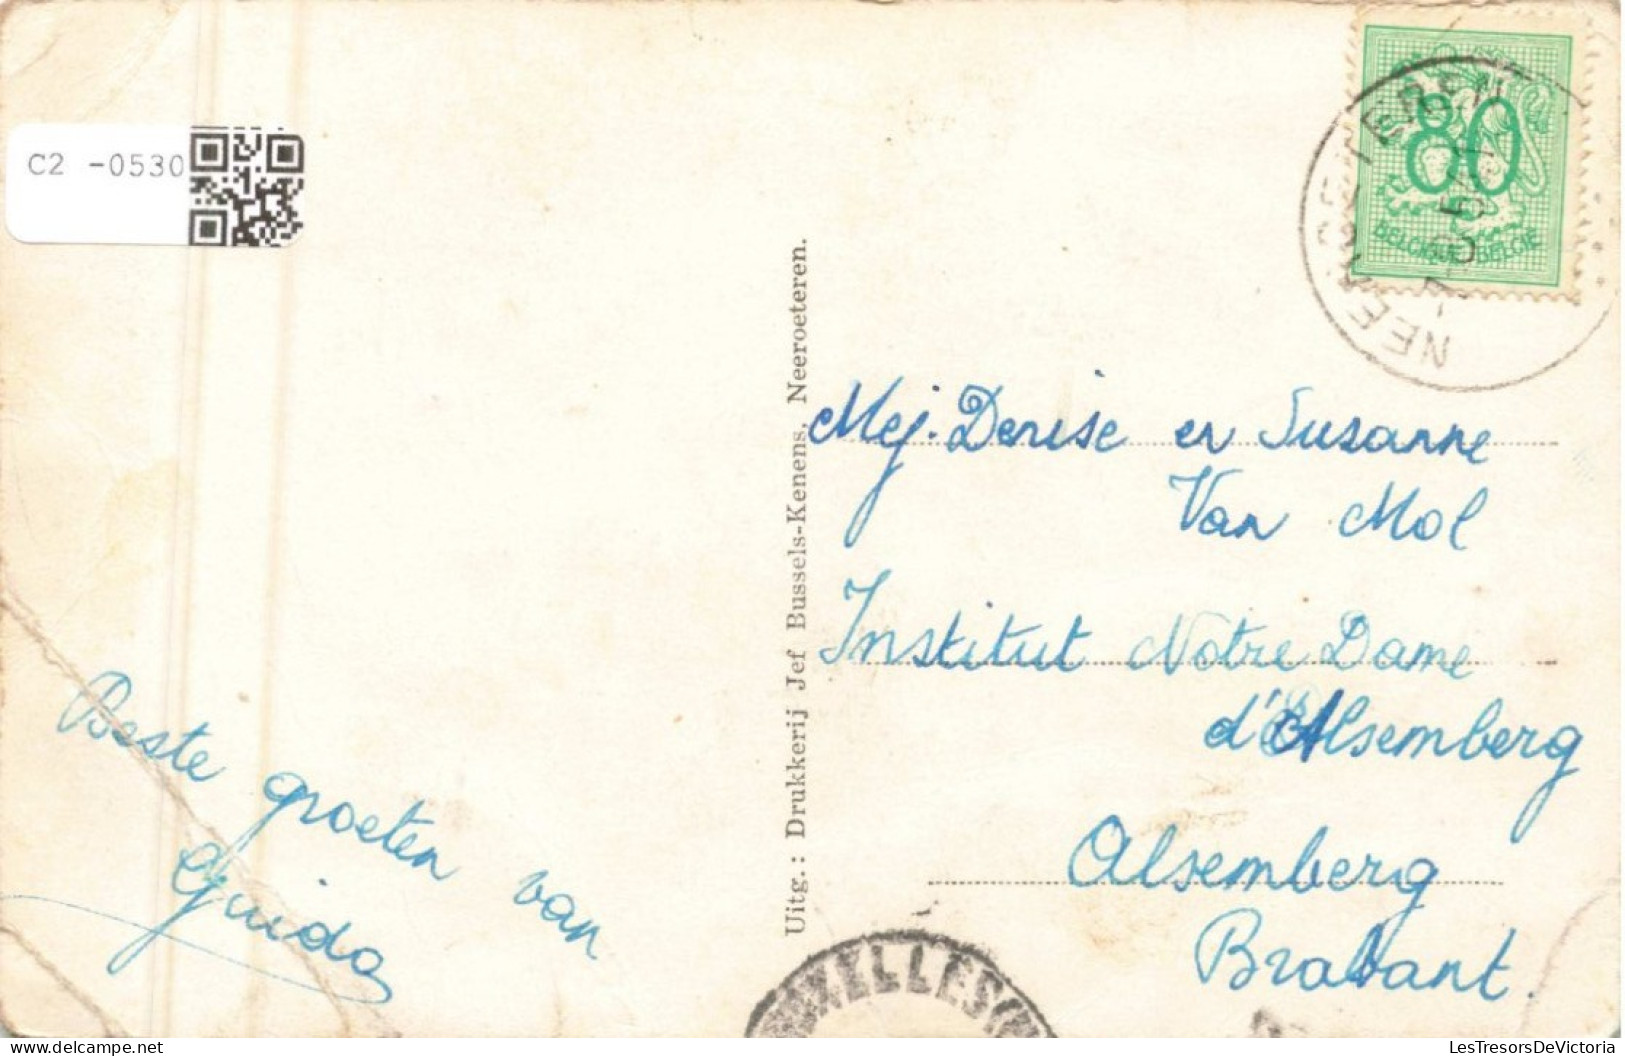 C2 -0530
80
BELGIQUE-BELGIË
NEEROETEREN
Uitg.: Drukkerij Jef Bussels-Kenens, Neeroeteren.
Mej. Denise en Suzanne
Van Mol
Institut Notre Dame
d'Alsemberg
Alsemberg
Brabant.
Beste groeten van
Guido
LesTresorsDeVictoria
www.delcampe.net